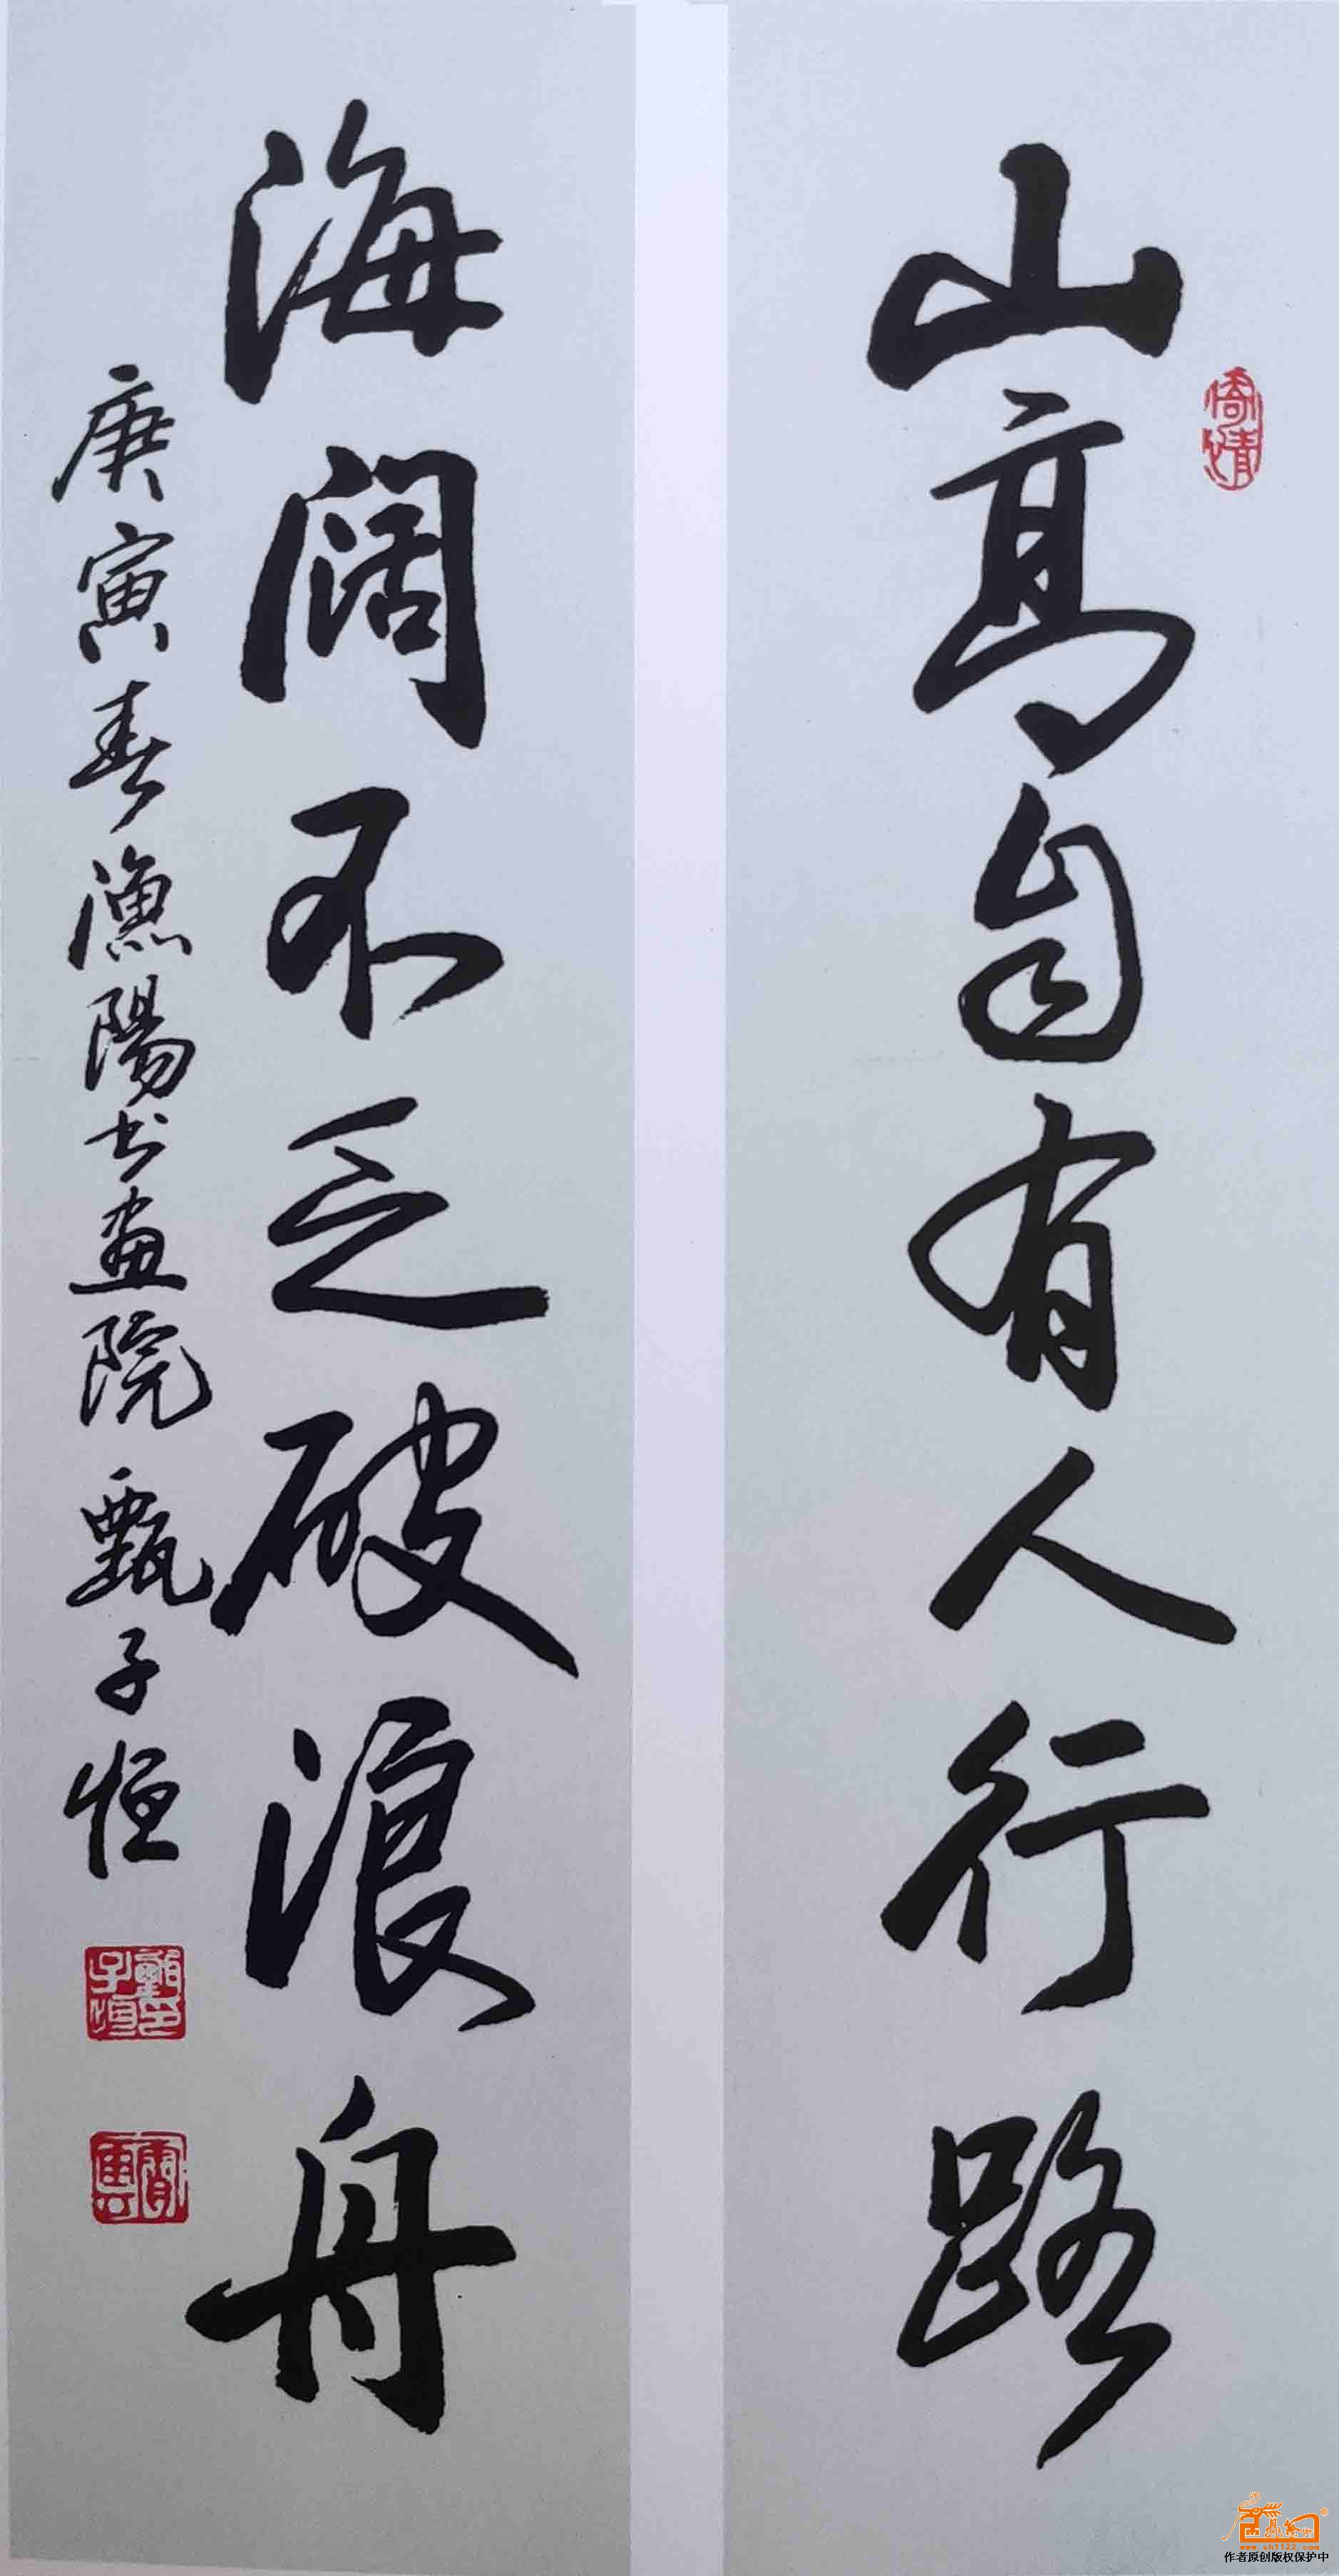 山高自有人行路
海阔不乏破浪舟
庚寅春漁陽书畫院甄子恒
www.sh1122.com
作者原创版权保护中